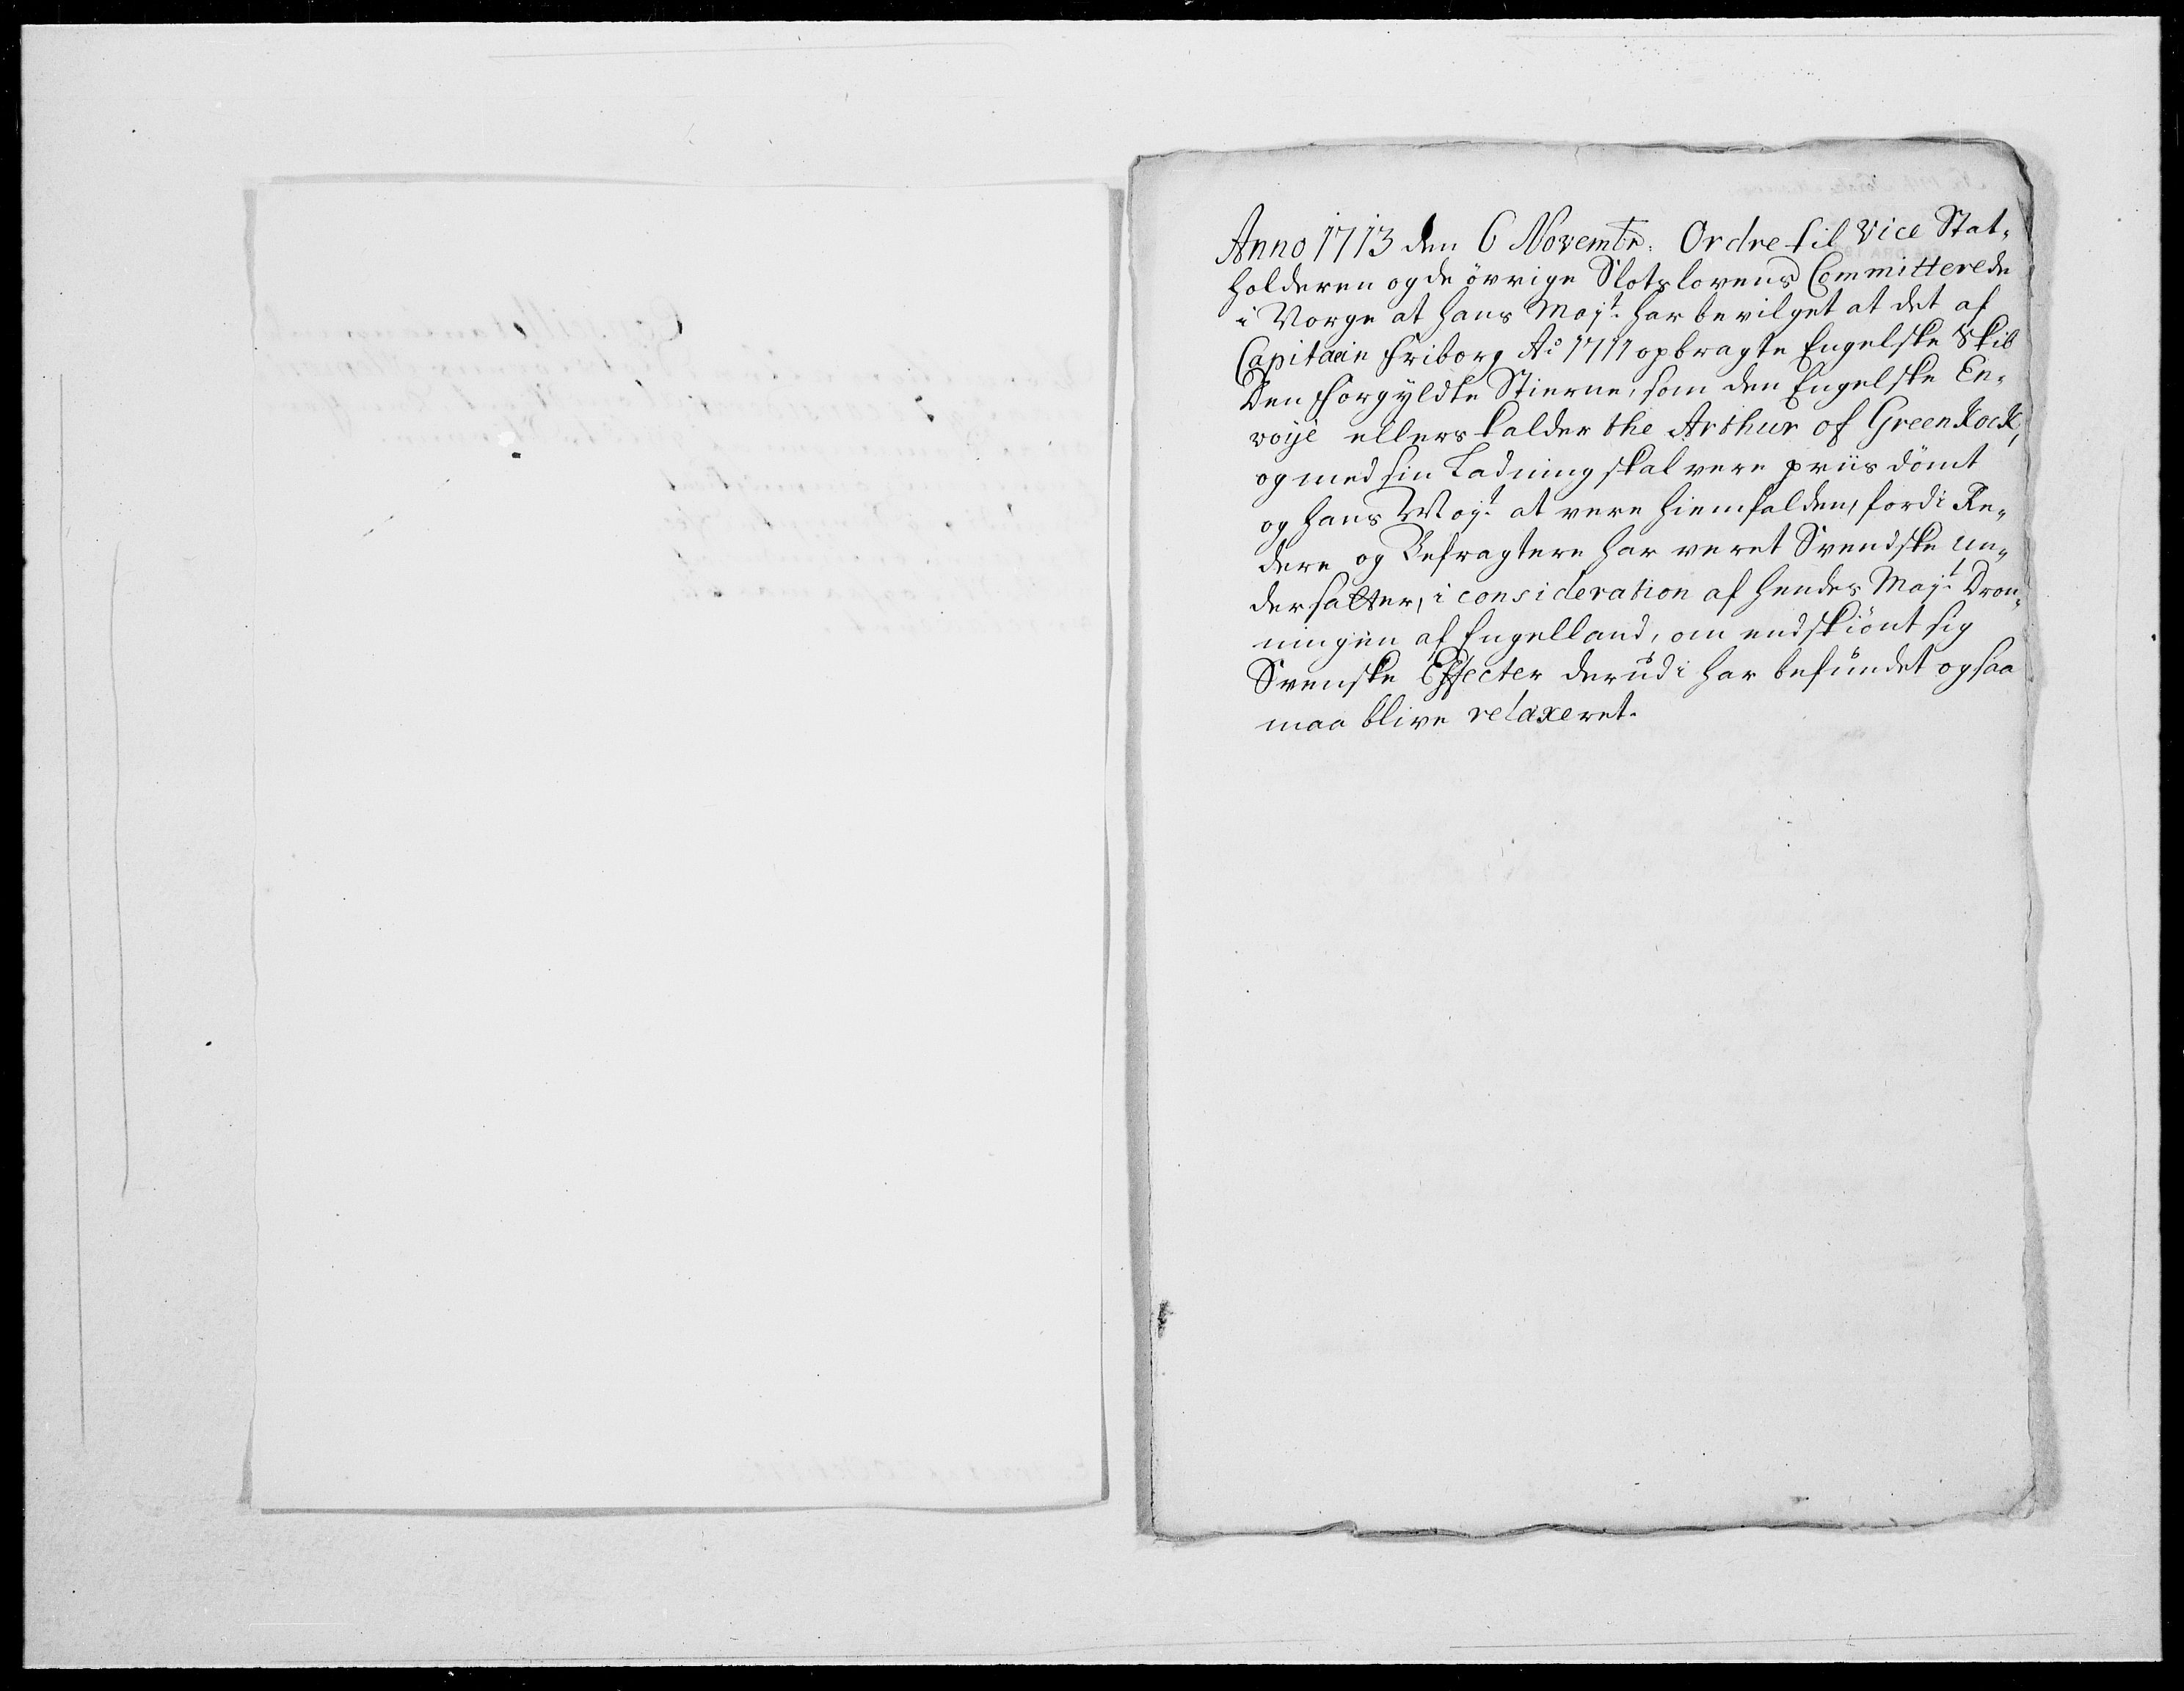 Anno 1713 den 6 Novembr. Ordre til Vice Stat-
holderen og de övrige Slotslovens Committerede
i Norge at hans Mayt. har bevilget at det af
Capitain Friborg Ao 1711 opbragte Engelske Skib
Den forgyldte Stierne, som den Engelske En-
voije ellers kalder the Arthur of Greenkock,
og med sin Ladning skal vere priis dömt
og hans Mayt. at vere hiemfalden, fordi Re-
dere og Befragtere har veret Svendske Un-
dersatter, i consideration af hendes Mayt. Dron-
ningen af Engelland, om endskiönt sig
Svenske Effecter derudi har befundet ogsaa
maa blive relaxeret.